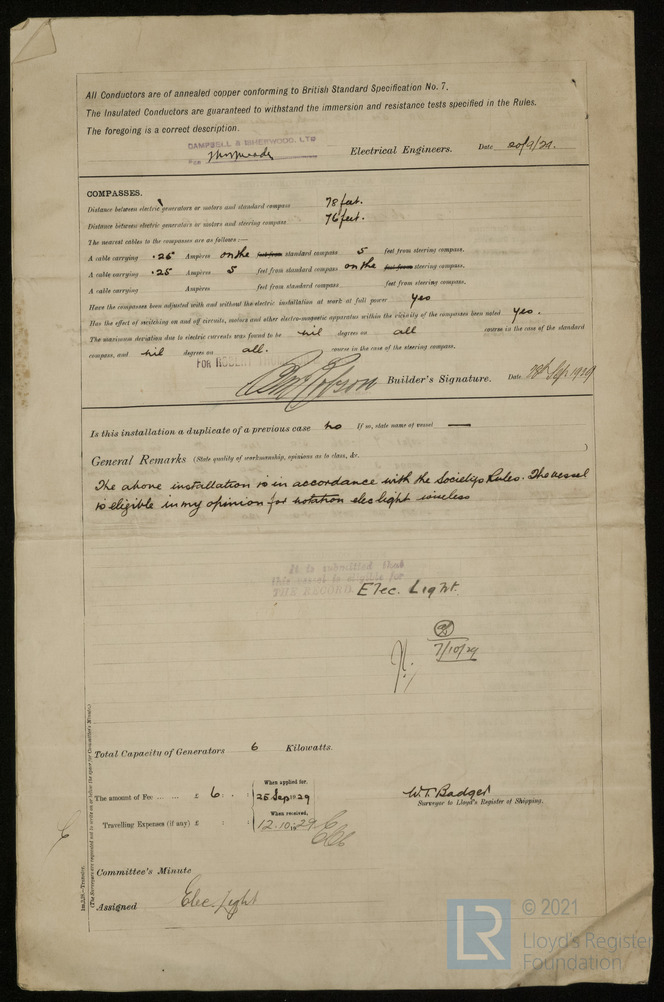 All Conductors are of annealed copper conforming to British Standard Specification No. 7.
The Insulated Conductors are guaranteed to withstand the immersion and resistance tests specified in the Rules.
The foregoing is a correct description.
CAMPBELL & ISHERWOOD, LTD
Electrical Engineers. Date 20/9/29.
COMPASSES.
Distance between electric generators or motors and standard compass 78 feet.
Distance between electric generators or motors and steering compass 76 feet.
The nearest cables to the compasses are as follows:—
A cable carrying .25 Ampères on the feet from standard compass 5 feet from steering compass.
A cable carrying .25 Ampères 5 feet from standard compass on the feet from steering compass.
A cable carrying Ampères feet from standard compass feet from steering compass.
Have the compasses been adjusted with and without the electric installation at work at full power yes
Has the effect of switching on and off circuits, motors and other electro-magnetic apparatus within the vicinity of the compasses been noted yes.
The maximum deviation due to electric currents was found to be nil degrees on all course in the case of the standard
compass, and nil degrees on all. course in the case of the steering compass.
FOR ROBERT
Builder's Signature. Date 28th Sep 1929
Is this installation a duplicate of a previous case no If so, state name of vessel —
General Remarks (State quality of workmanship, opinions as to class, &c. )
The above installation is in accordance with the Society's Rules. The vessel
is eligible in my opinion for notation elec light wireless
It is submitted that
this vessel is eligible for
THE RECORD. Elec. Light.
7/10/29
Total Capacity of Generators 6 Kilowatts.
The amount of Fee ... ... £ 6 : :
When applied for,
25 Sep 1929
Travelling Expenses (if any) £ : :
When received,
12.10.1929
W.T. Badger
Surveyor to Lloyd's Register of Shipping.
Committee's Minute
Assigned Elec. Light
Im.3,28.—Transfer.
(The Surveyors are requested not to write on or below the space for Committee's Minute.)
LR
© 2021
Lloyd's Register
Foundation